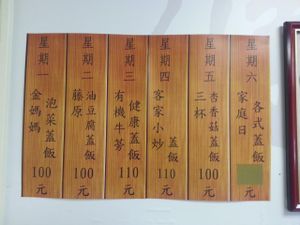 星期一
金媽媽
泡菜蓋飯
100元
星期二
藤原
油豆腐蓋飯
100元
星期三
有機牛蒡
健康蓋飯
110元
星期四
客家小炒
蓋飯
110元
星期五
三杯
杏香菇蓋飯
100元
星期六
家庭日
各式蓋飯
元